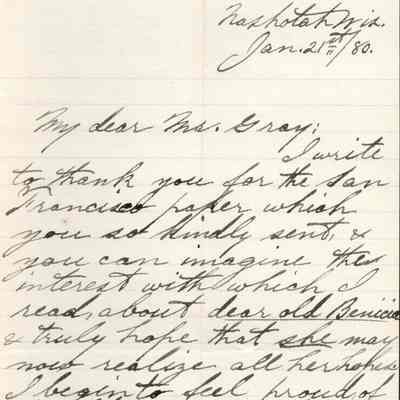 Nashotah Wis.
Jan. 21st/80.
My dear Mr. Gray;
I write
to thank you for the San
Francisco paper which
you so kindly sent, &
you can imagine the
interest with which I
read, about dear old Benicia
& truly hope that she may
now realize all her hopes.
I begin to feel proud of